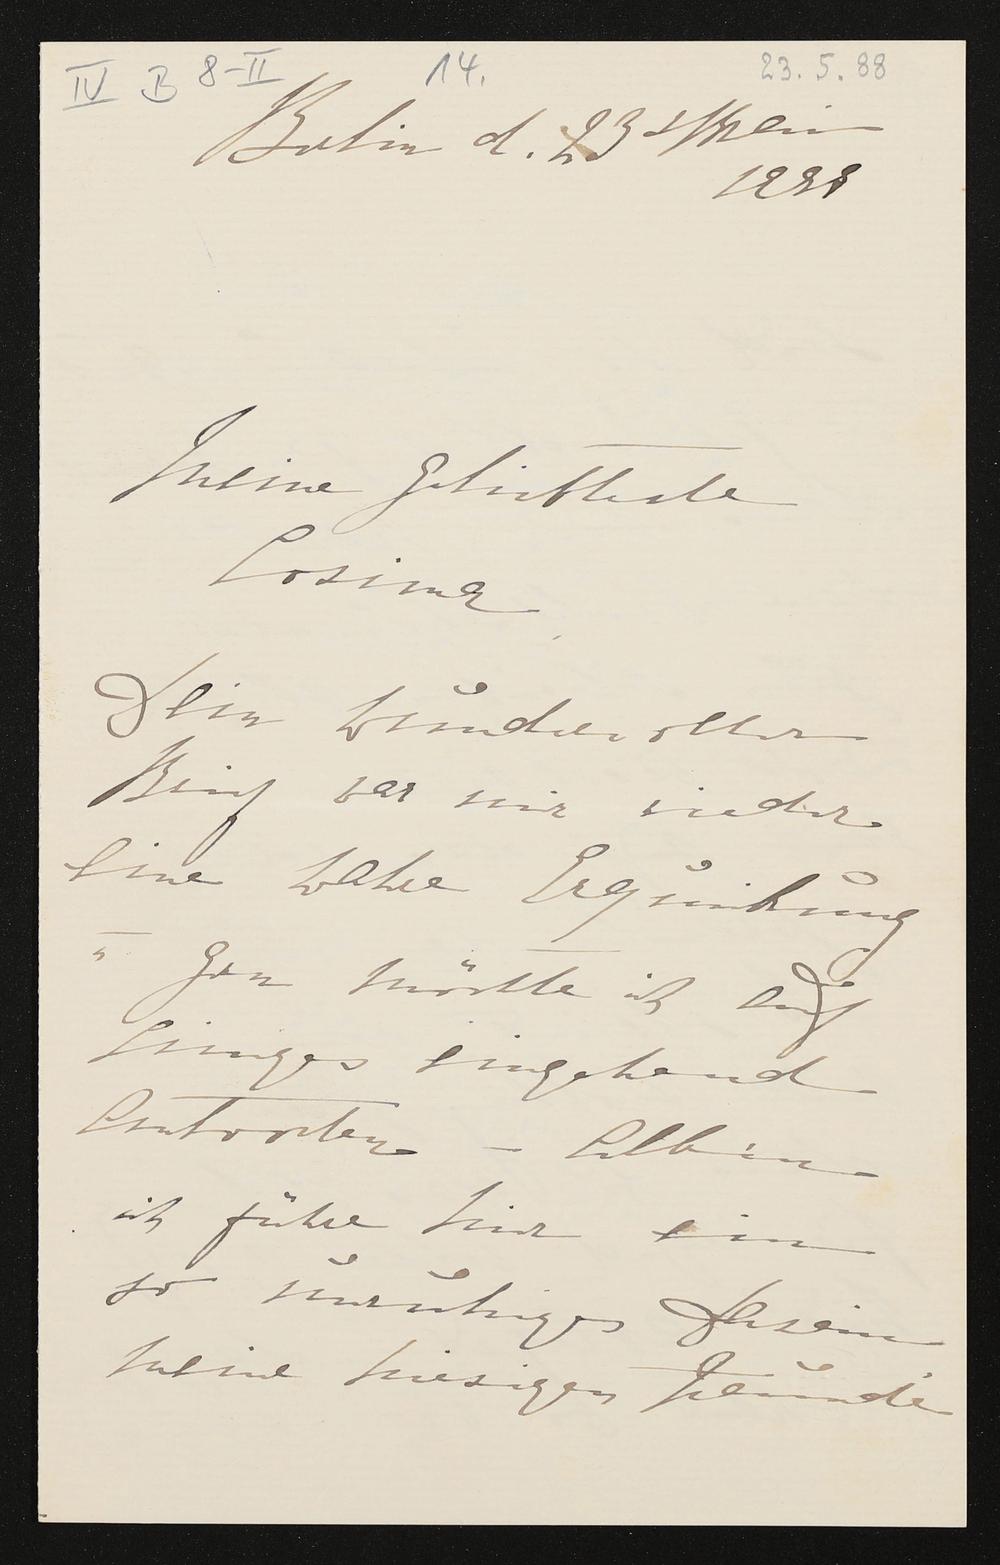 IV B 8-II 14. 23. 5. 88
Berlin d. 23st Mai
1888
Meine geliebteste
Cosima
Dein wundervoller
Brief war mir wieder
eine wahre Erquickung
u gern möchte ich auf
Einiges eingehend
antworten – Allein
ich führe hier ein
so unruhiges Dasein
meine hiesigen Freunde